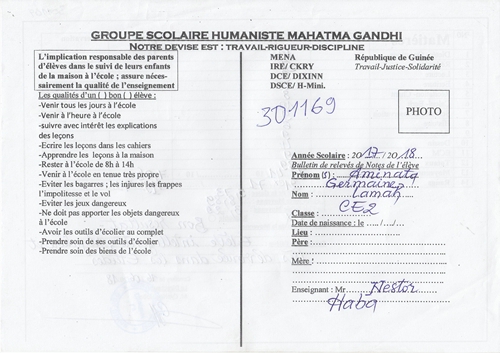 GROUPE SCOLAIRE HUMANISTE MAHATMA GANDHI
NOTRE DEVISE EST : TRAVAIL-RIGUEUR-DISCIPLINE
L'implication responsable des parents
d'élèves dans le suivi de leurs enfants
de la maison à l'école ; assure néces-
sairement la qualité de l'enseignement
Les qualités d'un ( ) bon ( ) élève :
-Venir tous les jours à l'école
-Venir à l'heure à l'école
-suivre avec intérêt les explications
des leçons
-Ecrire les leçons dans les cahiers
-Apprendre les leçons à la maison
-Rester à l'école de 8h à 14h
-Venir à l'école en tenue très propre
-Eviter les bagarres ; les injures les frappes
l'impolitesse et le vol
-Eviter les jeux dangereux
-Ne doit pas apporter les objets dangereux
à l'école
-Avoir les outils d'écolier au complet
-Prendre soin de ses outils d'écolier
-Prendre soin des biens de l'école
MENA
IRE/ CKRY
DCE/ DIXINN
DSCE/ H-Mini.
République de Guinée
Travail-Justice-Solidarité
301169
PHOTO
Année Scolaire : 2017/2018
Bulletin de relevés de Notes de l'élève
Prénom (s) : Aminata
Germaine
Nom : Lamah
Classe : CE2
Date de naissance : le ..../..../....
Lieu :
Père :
Mère :
Enseignant : Mr Nestor
Haba